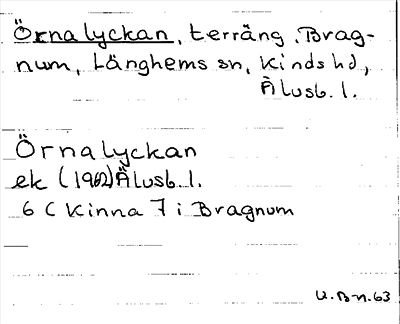 Örnalyckan, terräng, Brag-
num, Länghems sn, Kinds hd,
Älvsb. l.
Örnalyckan
ek (1962) Älvsb. l.
6 C Kinna 7 i Bragnum
U.B-n.63